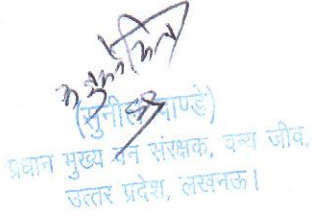 (सुनील पाण्डे)
प्रधान मुख्य वन संरक्षक, वन्य जीव,
उत्तर प्रदेश, लखनऊ।